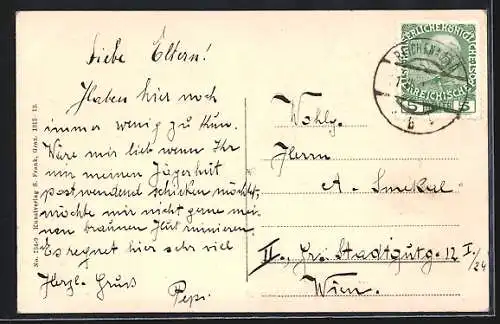 Liebe Eltern!
Haben hier noch
immer wenig zu tun.
Wäre mir lieb wenn Ihr
mir meinen Jägerhut
postwendend schicken möchtet,
möchte mir nicht gerne mei-
nen braunen Hut ruinieren.
Es regnet hier sehr viel
Herzl. Gruss
Pepi
No. 134-9 Kunstverlag S. Frank, Graz. 1912-13.
Wohlg.
Herrn
A. Smekal
II., Gr. Stadtgutg. 12 I./24
Wien.
KAISERLICHE KÖNIGLICHE
ÖSTERREICHISCHE
5